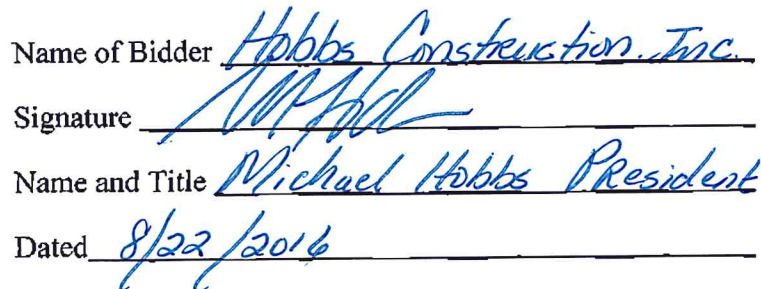 Name of Bidder Hobbs Construction. Inc.
Signature
Name and Title Michael Hobbs President
Dated 8/22/2016